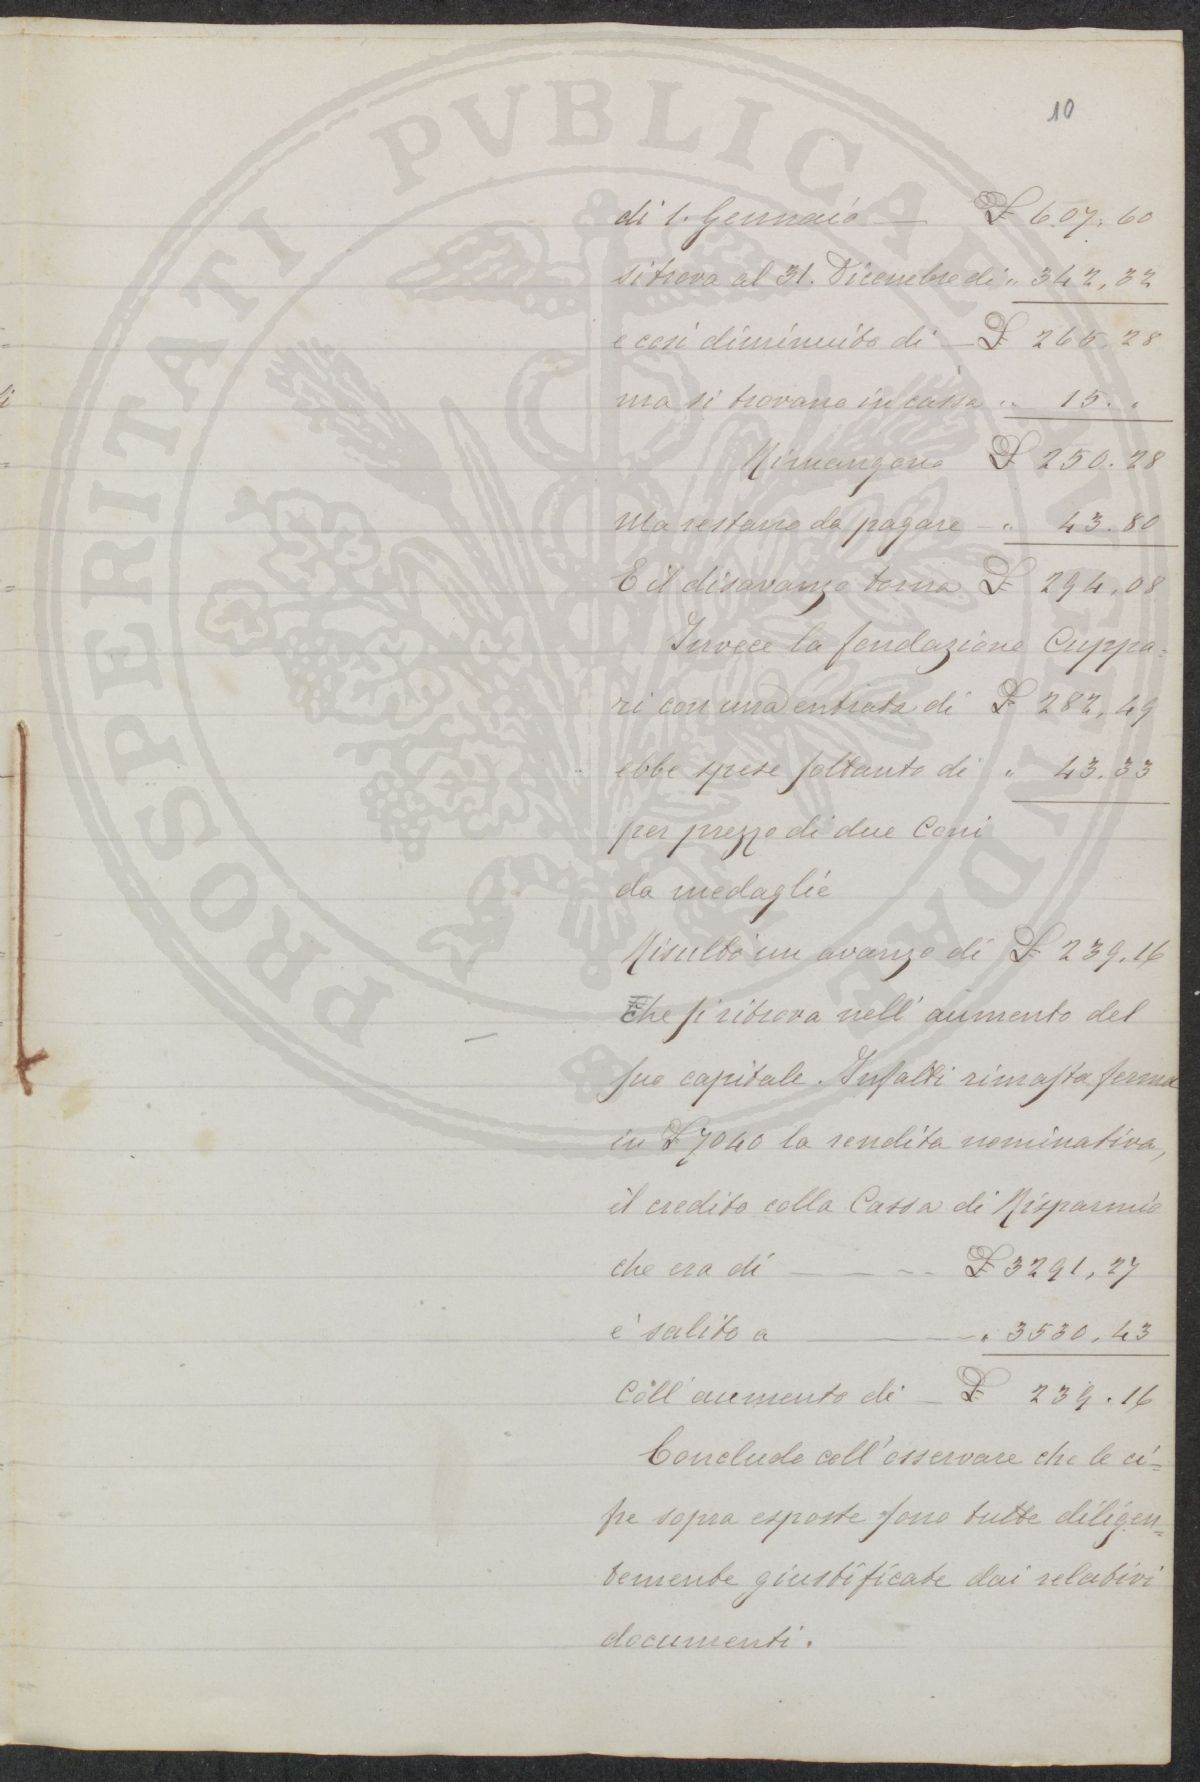 10
di 1. Gennaio — £ 607,60
si trova al 31. Dicembre di " 342,32
e così diminuito di — £ 265,28
ma si trovano in cassa " 15. "
Rimangono £ 250.28
Ma restano da pagare — " 43.80
E il disavanzo torna £ 294,08
Invece la fondazione Cuppa=
ri con una entrata di £ 282,49
ebbe spese soltanto di " 43.33
per prezzo di due Coni
da medaglie
Risultò un avanzo di £ 239,16
Che si ritrova nell'aumento del
suo capitale. Infatti rimasta ferma
in £ 7040 la rendita nominativa,
il credito colla Cassa di Risparmio
che era di — — — £ 3291,27
è salito a — — " 3530,43
Coll'aumento di — £ 239.16
Concludo coll'osservare che le ci=
fre sopra esposte sono tutte diligen=
temente giustificate dai relativi
documenti.
PROSPERITATI PVBLICAE AVGENDAE